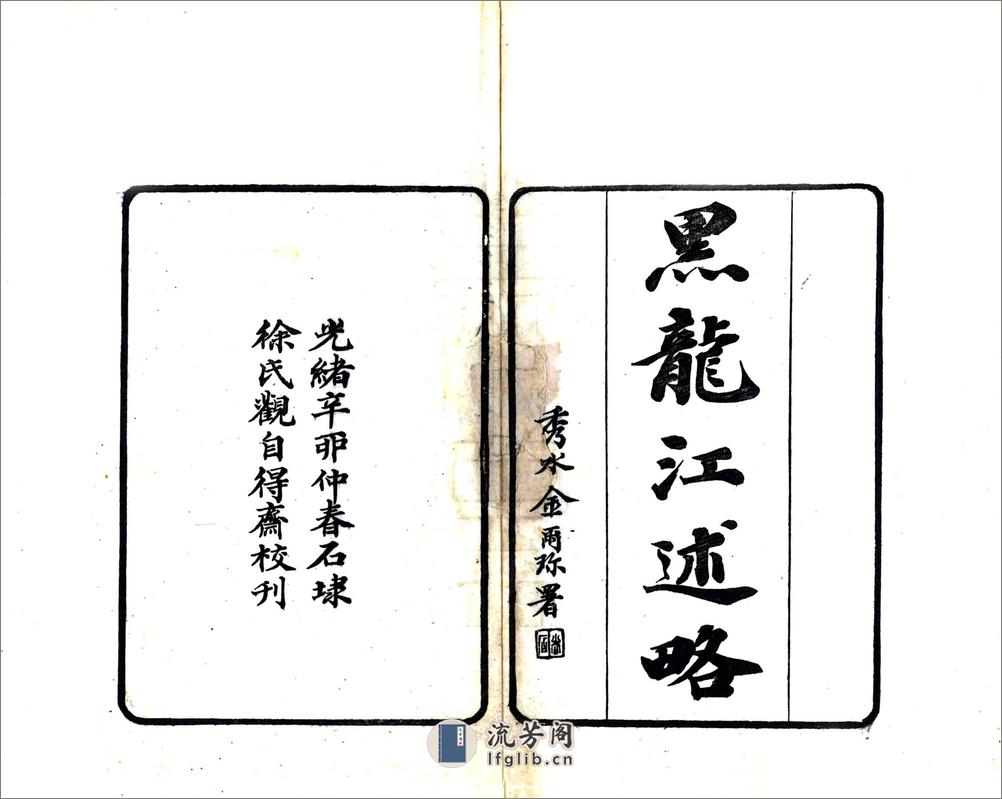 黑龍江述略
秀水金爾珍署
光緒辛卯仲春石埭
徐氏觀自得齋校刊
流芳阁
lfglib.cn